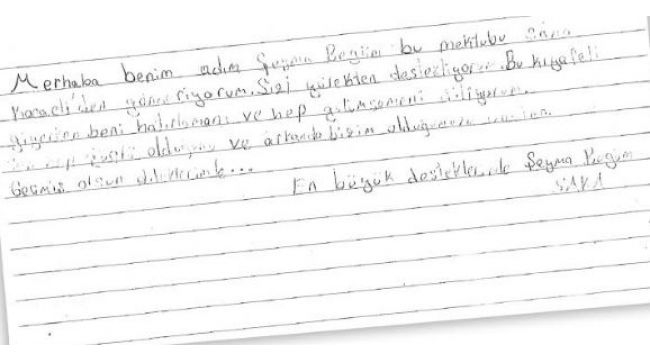 Merhaba benim adım Şeyma Begüm bu mektubu sana
Kocaeli'den gönderiyorum. Sizi yürekten destekliyorum. Bu kıyafeti
giyerken beni hatırlamanı ve hep gülümsemeni diliyorum.
olduğunu ve arkanda bizim olduğumuzu
Geçmiş olsun dileklerimle...
En büyük destekler Şeyma Begüm